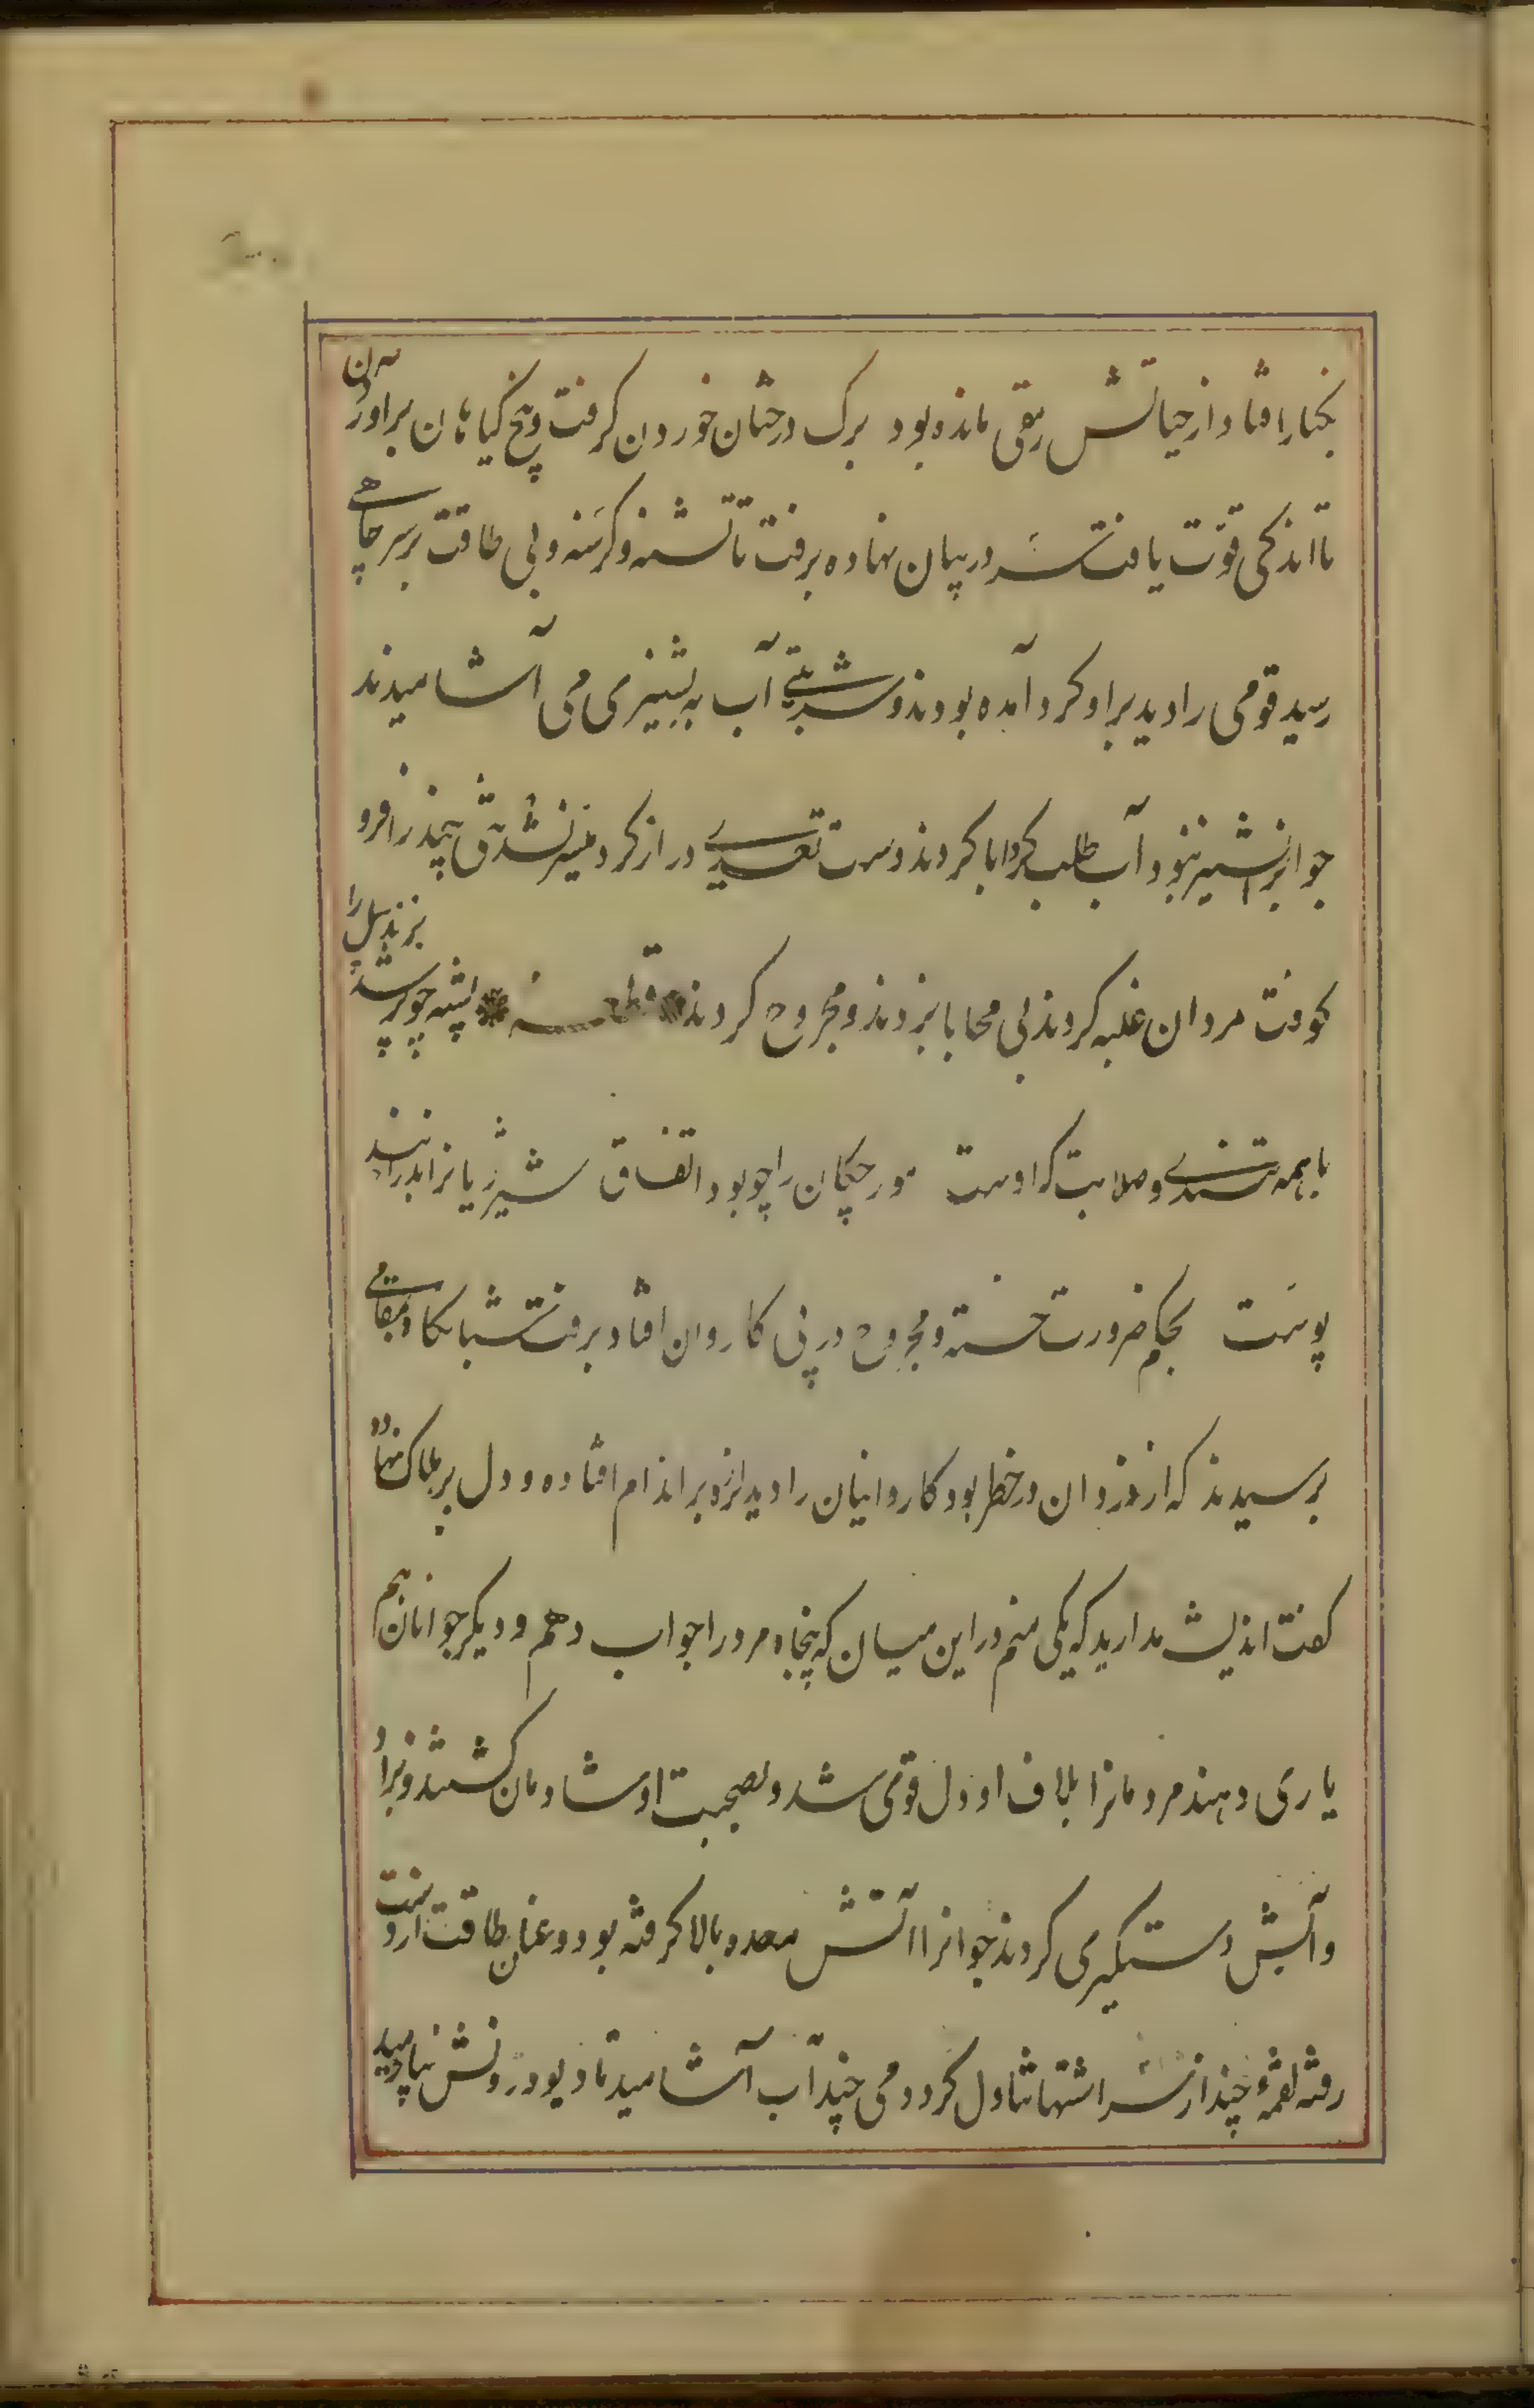 بکنار افتاد از حیاتش رمقی مانده بود برک درختان خوردن کرفت و بیخ کیاهان برآوردن
تا اندکی قوّت یافت سر در بیابان نهاده برفت تا تشنه و کرسنه و بی طاقت بر سر چاهی
رسید قومی را دید بر او کرد آمده بودند و شربتی آب به پشیزی می آشامیدند
جوانرا پشیز نبود آب طلب کرد ابا کردند دست تعدی دراز کرد میسر نشد تنی چند را فرو
کوفت مردان غلبه کردند بی محابا بزدند و مجروح کردند قطعه پشه چو پر شد بزند پیل را
با همه تندی و صلابت که اوست مورچکان را چو بود اتفاق شیر ژیانرا بدرانند
پوست بحکم ضرورت خسته و مجروح در پی کاروان افتاد و برفت شبانکاه بمقامی
برسیدند که از دزدان در خطر بود کاروانیان را دید لرزه بر اندام افتاده و دل بر هلاک نهاده
کفت اندیشه مدارید که یکی منم در این میان که پنجاه مرد را جواب دهم و دیکر جوانان هم
یاری دهند مردمانرا بلاف او دل قوی شد و بصحبت او شادمان کشتند و بزاد
و آبش دستکیری کردند جوانرا آتش معده بالا کرفته بود و عنان طاقت از دست
رفته لقمهٔ چند از سر اشتها تناول کرد و دمی چند آب آشامید تا دیو درونش بیارمید